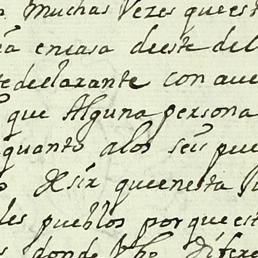 Muchas Vezes que est
en casa de este del
te declarante con que
que Alguna persona
quanto a los seis pue
Dezir que en esta
les pueblos por que est
donde dho Difere